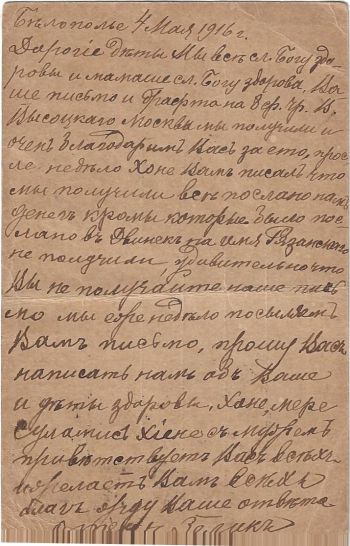 Бѣлополье 4 Мая 1916 г.
Дарогіе дѣты Мы всѣ сл. Богу здо-
ровы и мамаше сл. Богу здорова, Ва-
ше письмо и на 8 ср. чр. В.
Высоцкаго Москвы мы получили и
очен благодарим Вас за ето, прос
ле недѣло Хоне Вам писал что
мы получили всѣ послано нам
денег кромы которые было пос-
лано въ Двинск на имя
не получили удивительно что
Вы не получайте наше пись
мо мы недѣло посылаем
Вам письмо, прошу Вас
написать нам объ Ваше
и дѣты здоровы, Хоне, мере
Суламис Хіене с
привѣтствует Вас всѣх
и Вам всех
благ Ваше отвѣта